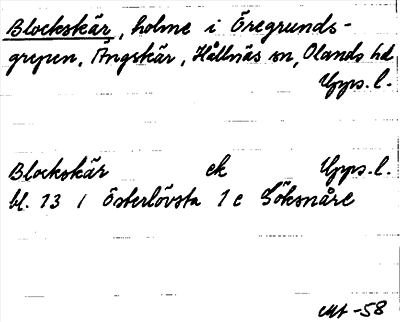 Blockskär, holme i Öregrunds-
grepen, Ängskär, Hållnäs sn, Olands hd
Upps. l.
Blockskär ek Upps. l.
bl. 13 / Österlövsta 1e Söksnåre
Mt -58